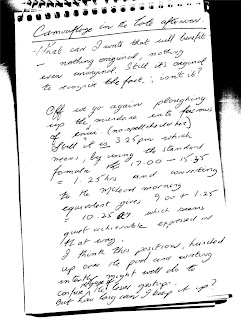 Camouflage in the late afternoon.
What can I write that will benefit
- nothing original, nothing
even unoriginal. Still it's original
to recognise the fact, isn't it?
Off we go again ploughing
up the mundane into furrows
of (no spell checker)
Well it is 3.25pm which
means, by using the standard
formula the 17.00 - 15.35
= 1.25hrs and converting
to the morning
equivalent gives 9.00 + 1.25
= 10.25 which seems
quite achievable expressed in
that way.
I think this position, hunched
up over the pad and writing
intently might well do to
confuse the
But how long can I keep it up?